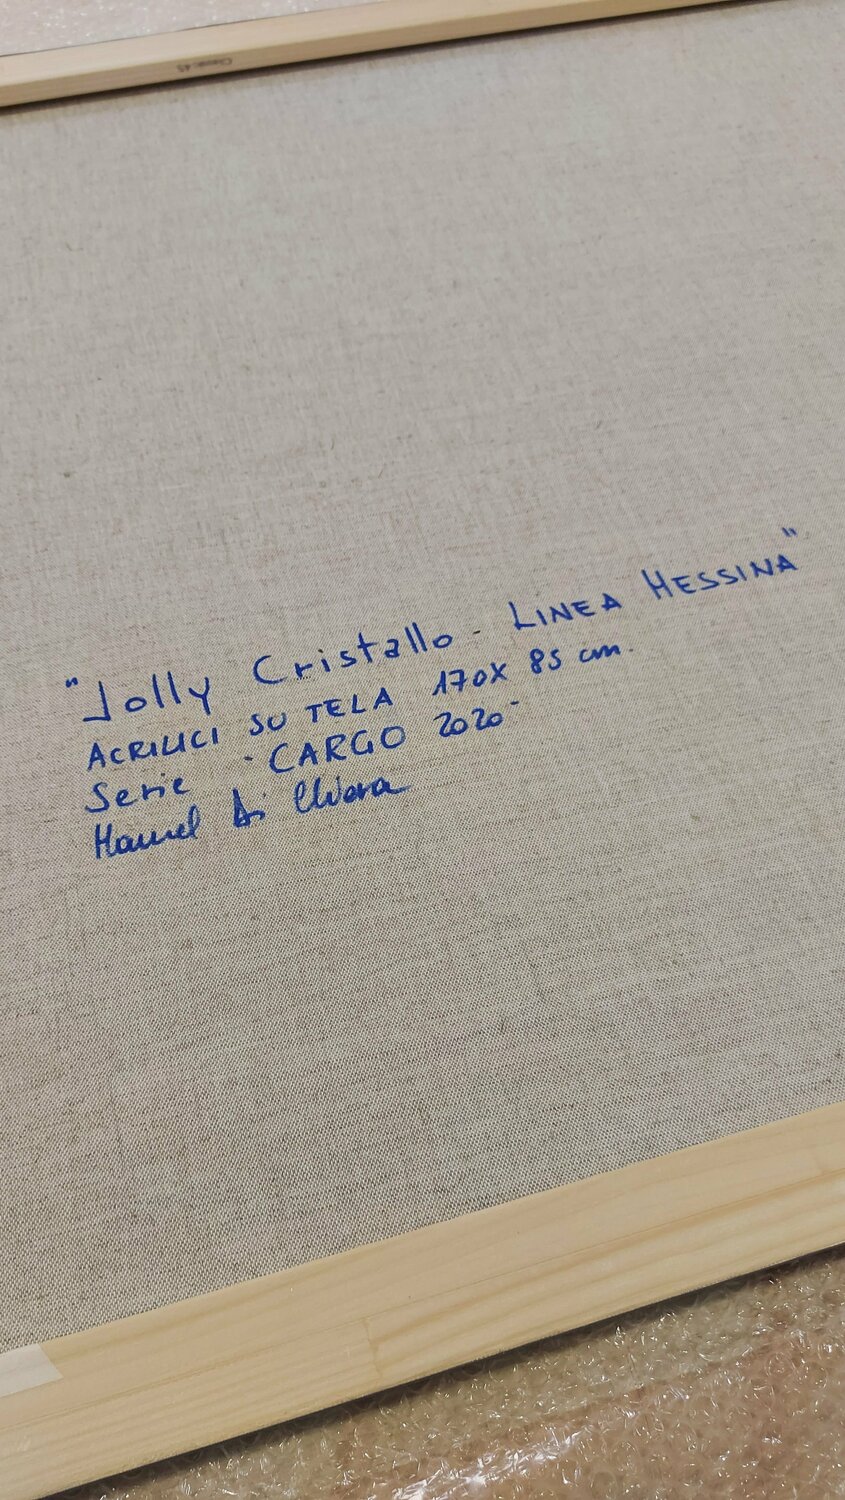 "Jolly Cristallo - LINEA MESSINA"
ACRILICI SU TELA 170X 85 cm.
Serie "CARGO 2020"
Manuel Di Chiara